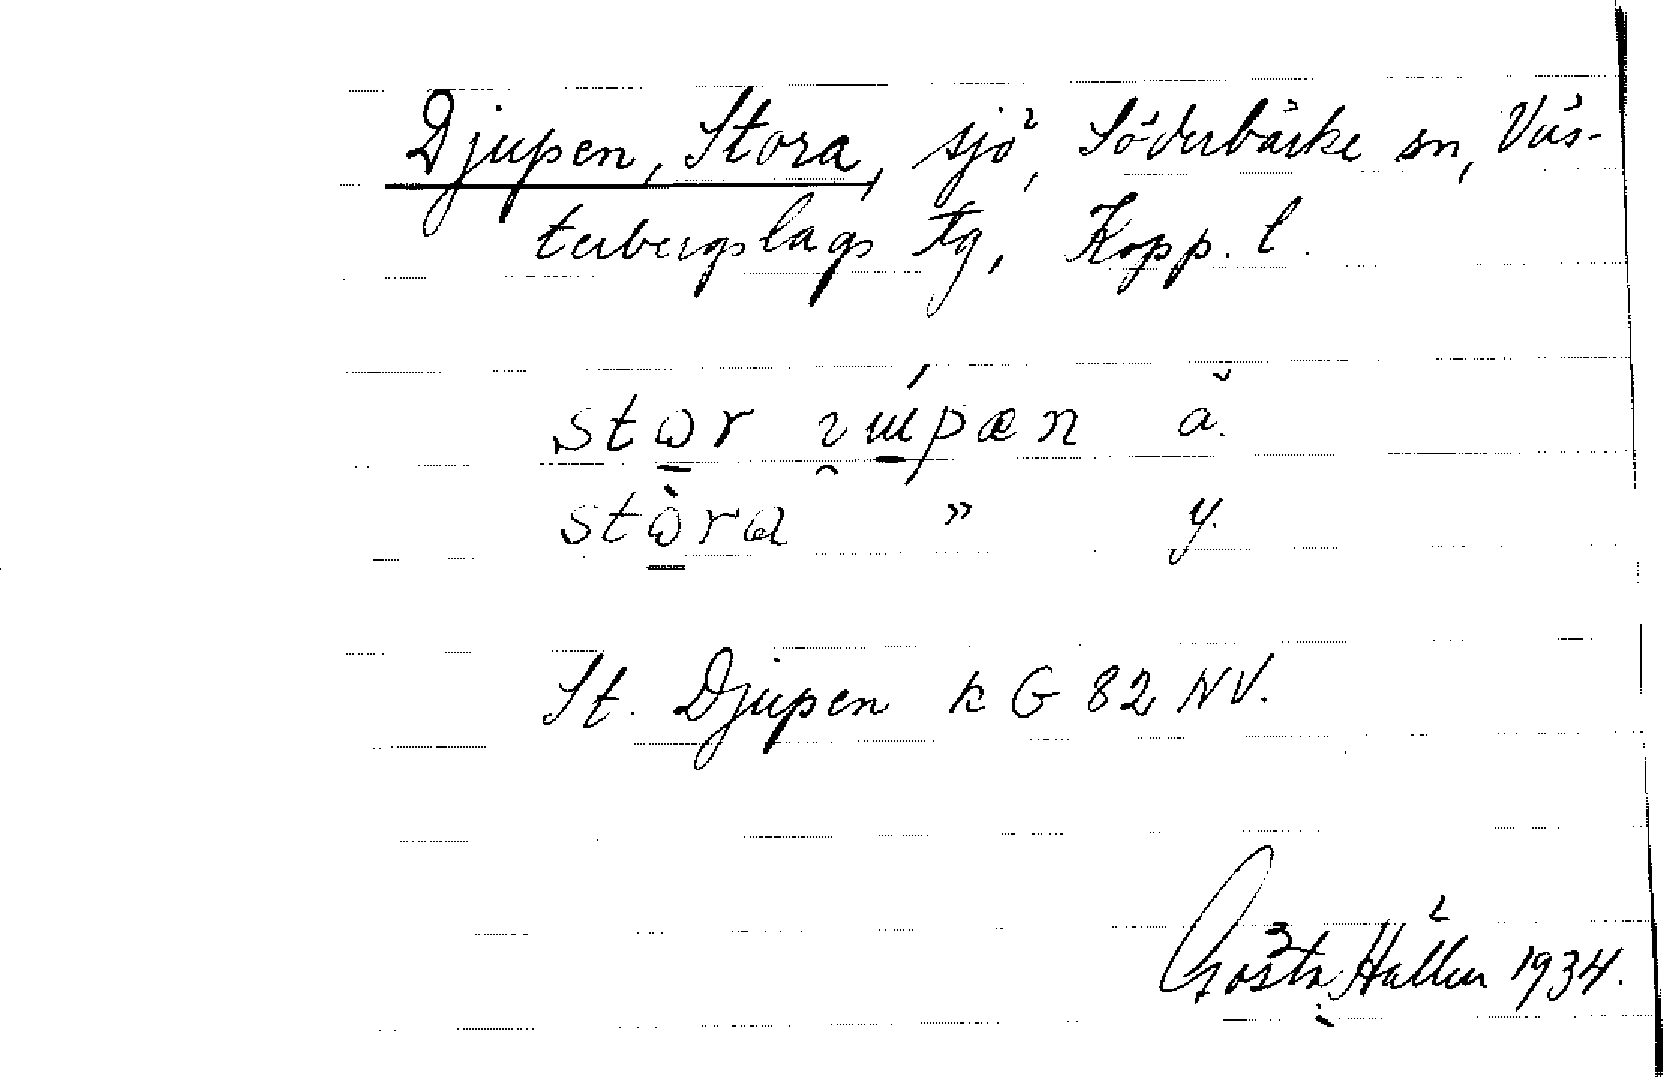 Djupen, Stora, sjö, Söderbärke sn, Väs-
terbergslags tg, Kopp. l.
stɷr ɪɯ́pæn ä.
stɷ̀ra " y.
St. Djupen k G 82 NV.
Gösta Hallen 1934.